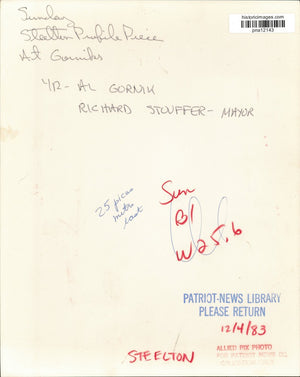 historicimages.com
pnx12143
Sunday
Steelton Profile Piece
At Gorniks
4/12- AL GORNIK
RICHARD STOUFFER- MAYOR
25 picas
metro
east
Sun
B1
W 25.6
PATRIOT-NEWS LIBRARY
PLEASE RETURN
12/4/83
ALLIED PIX PHOTO
FOR PATRIOT NEWS CO.
STEELTON